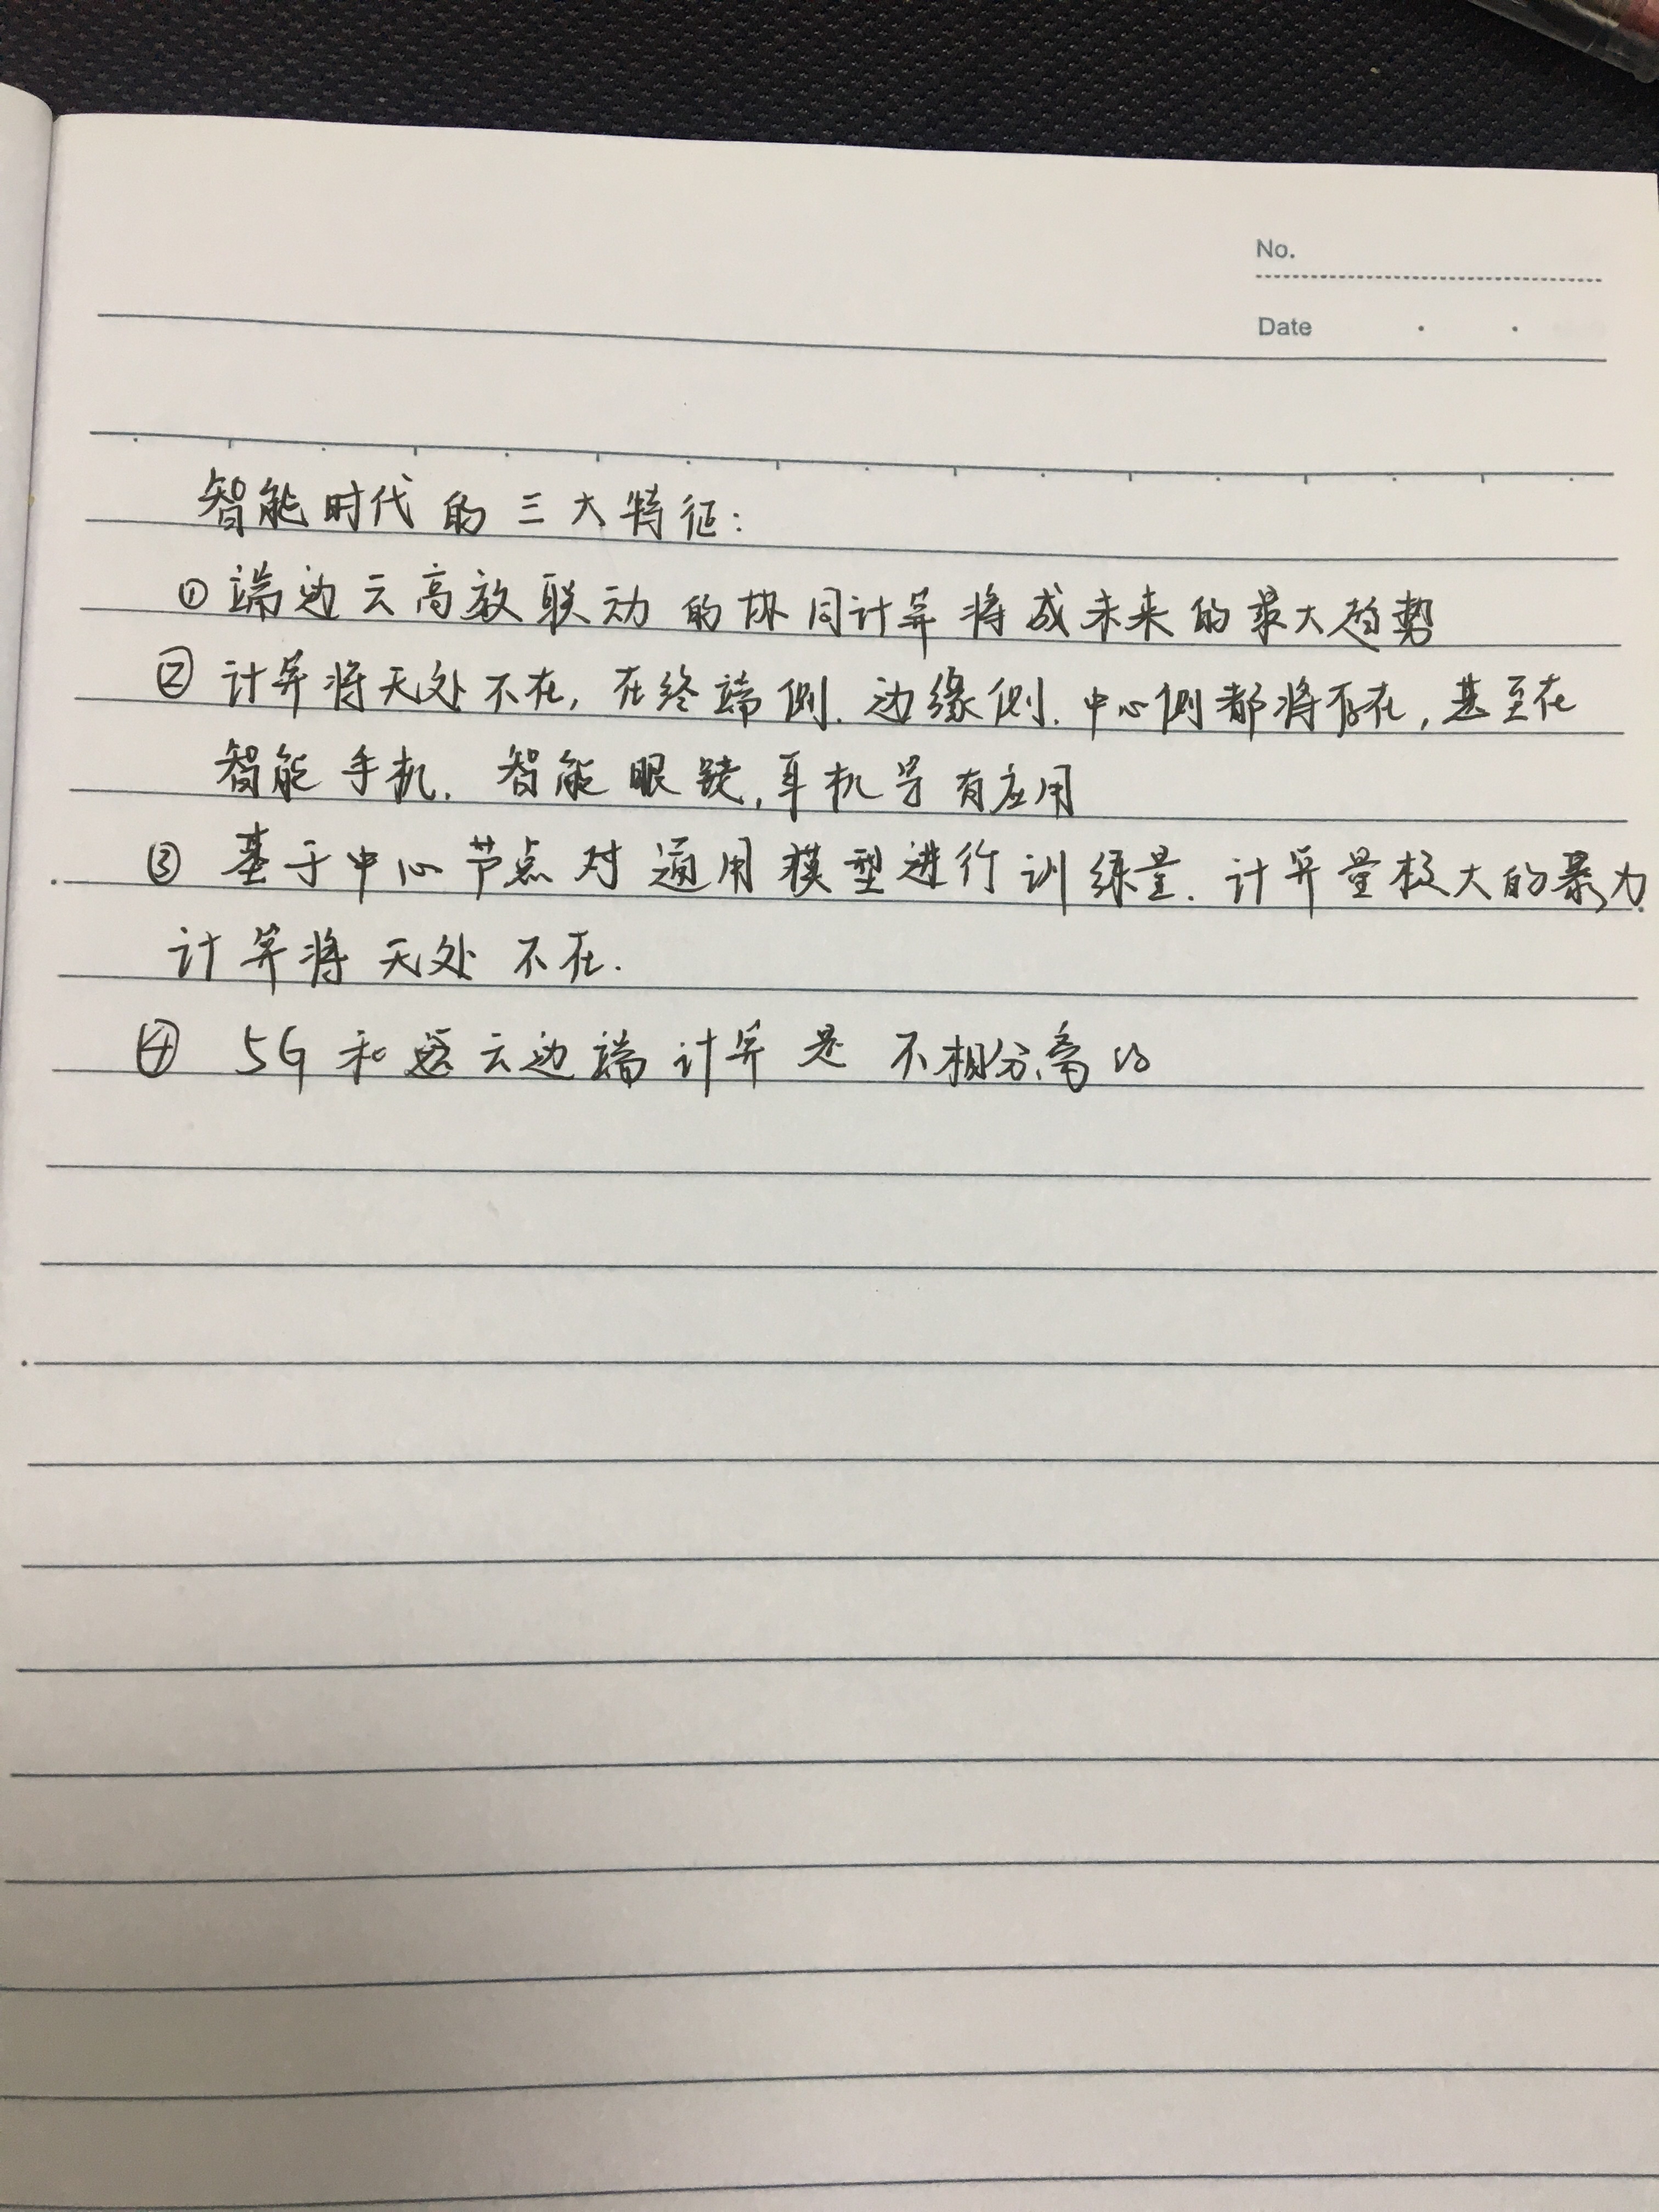 No.
Date
智能时代的三大特征:
① 端边云高效联动的协同计算将成未来的最大趋势
② 计算将无处不在, 在终端侧. 边缘侧. 中心侧都将存在, 甚至在
智能手机. 智能眼镜, 耳机等有应用
③ 基于中心节点对通用模型进行训练量. 计算量极大的暴力
计算将无处不在.
④ 5G和云边端计算是不相分离的